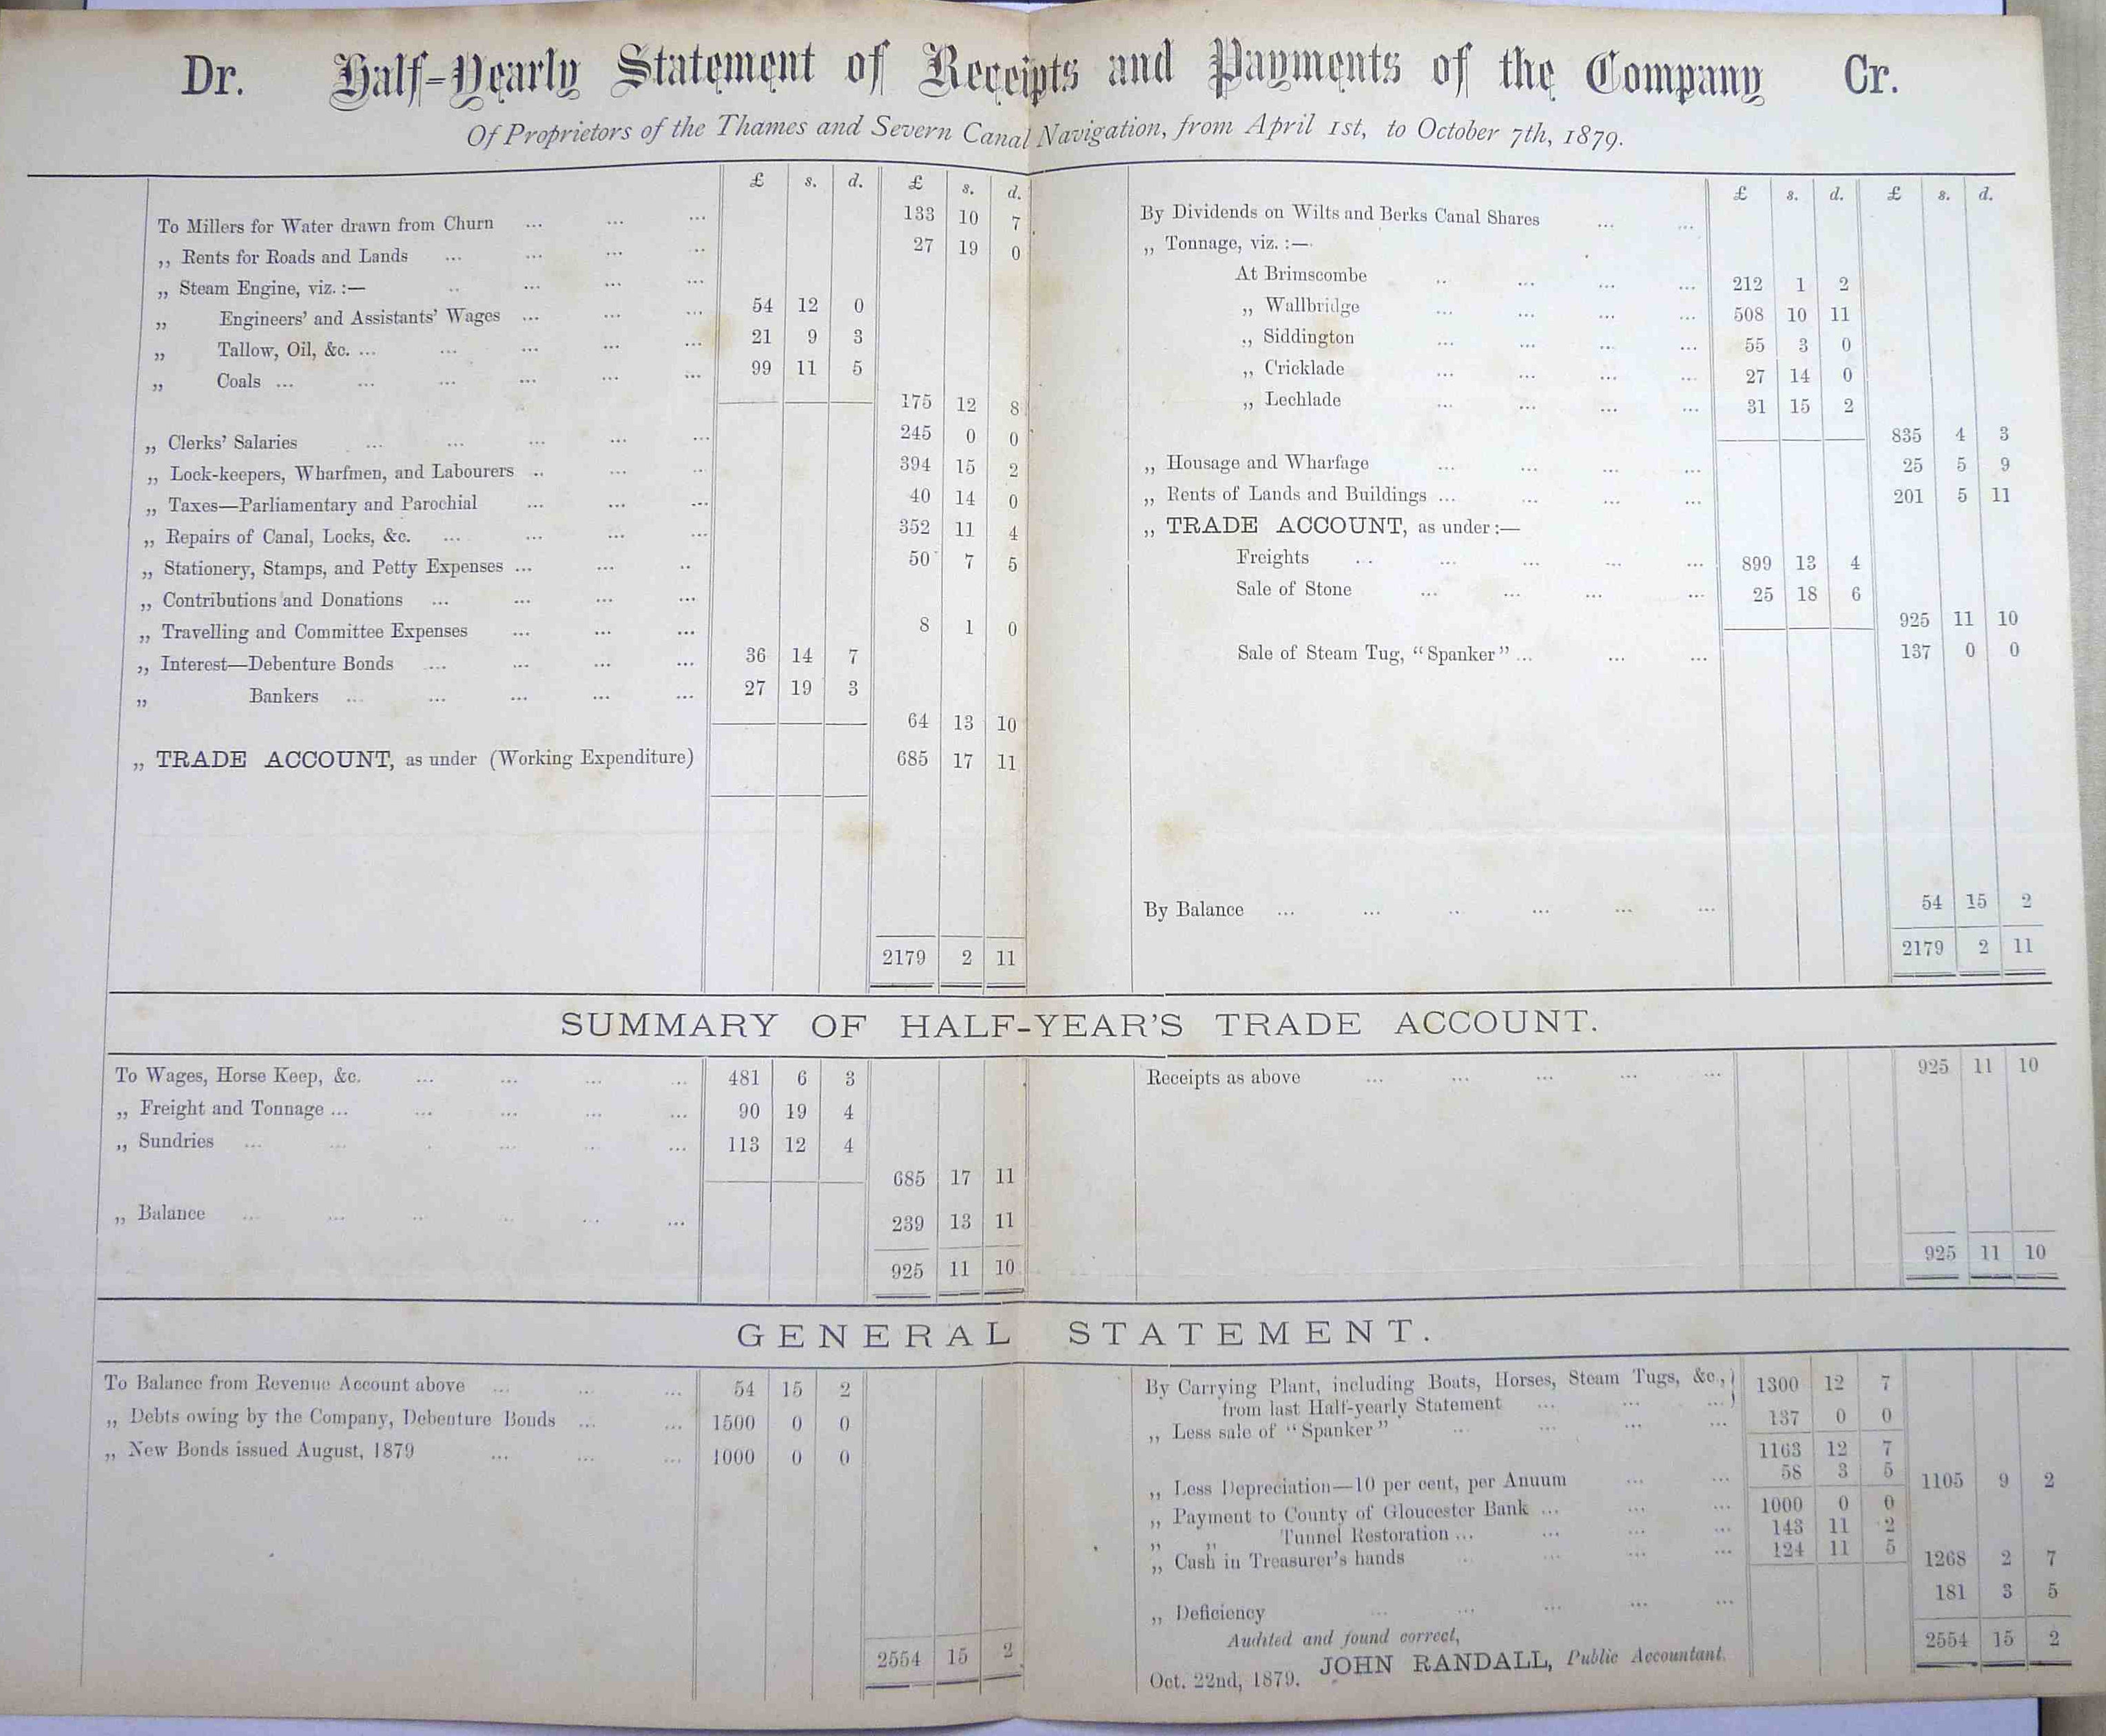 Dr. Half-Yearly Statement of Receipts and Payments of the Company Cr.
Of Proprietors of the Thames and Severn Canal Navigation, from April 1st, to October 7th, 1879.
£ s. d. £ s. d.
To Millers for Water drawn from Churn ... ... ... 133 10 7
„ Rents for Roads and Lands ... ... ... .. 27 19 0
„ Steam Engine, viz. :— .. ... ... ...
„ Engineers' and Assistants' Wages ... ... ... 54 12 0
„ Tallow, Oil, &c. ... ... ... ... ... 21 9 3
„ Coals ... ... ... ... ... ... 99 11 5
175 12 8
„ Clerks' Salaries ... ... ... ... ... 245 0 0
„ Lock-keepers, Wharfmen, and Labourers .. ... .. 394 15 2
„ Taxes—Parliamentary and Parochial ... ... ... 40 14 0
„ Repairs of Canal, Locks, &c. ... ... ... ... 352 11 4
„ Stationery, Stamps, and Petty Expenses ... ... .. 50 7 5
„ Contributions and Donations ... ... ... ...
„ Travelling and Committee Expenses ... ... ... 8 1 0
„ Interest—Debenture Bonds ... ... ... ... 36 14 7
„ Bankers ... ... ... ... ... 27 19 3
64 13 10
„ TRADE ACCOUNT, as under (Working Expenditure) 685 17 11
2179 2 11
£ s. d. £ s. d.
By Dividends on Wilts and Berks Canal Shares ... ...
„ Tonnage, viz. :—
At Brimscombe .. ... ... ... 212 1 2
„ Wallbridge ... ... ... ... 508 10 11
„ Siddington ... ... ... ... 55 3 0
„ Cricklade ... ... ... ... 27 14 0
„ Lechlade ... ... ... ... 31 15 2
835 4 3
„ Housage and Wharfage ... ... ... ... 25 5 9
„ Rents of Lands and Buildings ... ... ... ... 201 5 11
„ TRADE ACCOUNT, as under:—
Freights ... ... ... ... ... 899 13 4
Sale of Stone ... ... ... ... 25 18 6
925 11 10
Sale of Steam Tug, “Spanker” ... ... ... 137 0 0
By Balance ... ... .. ... ... ... 54 15 2
2179 2 11
SUMMARY OF HALF-YEAR'S TRADE ACCOUNT.
To Wages, Horse Keep, &c. ... ... ... ... 481 6 3
„ Freight and Tonnage ... ... ... ... ... 90 19 4
„ Sundries ... ... . ... ... 113 12 4
685 17 11
„ Balance ... ... ... ... ... ... 239 13 11
925 11 10
Receipts as above ... ... ... ... ... 925 11 10
925 11 10
GENERAL STATEMENT.
To Balance from Revenue Account above ... ... ... 54 15 2
„ Debts owing by the Company, Debenture Bonds ... ... 1500 0 0
„ New Bonds issued August, 1879 ... ... ... 1000 0 0
2554 15 2
By Carrying Plant, including Boats, Horses, Steam Tugs, &c., } 1300 12 7
from last Half-yearly Statement ... ... ...
„ Less sale of “Spanker” ... ... ... 137 0 0
1163 12 7
„ Less Depreciation—10 per cent, per Annum ... ... 58 3 5 1105 9 2
„ Payment to County of Gloucester Bank ... ... ... 1000 0 0
„ „ Tunnel Restoration ... ... ... ... 143 11 2
„ Cash in Treasurer's hands ... ... ... ... 124 11 5 1268 2 7
„ Deficiency ... ... ... ... ... 181 3 5
Audited and found correct,
2554 15 2
Oct. 22nd, 1879. JOHN RANDALL, Public Accountant.